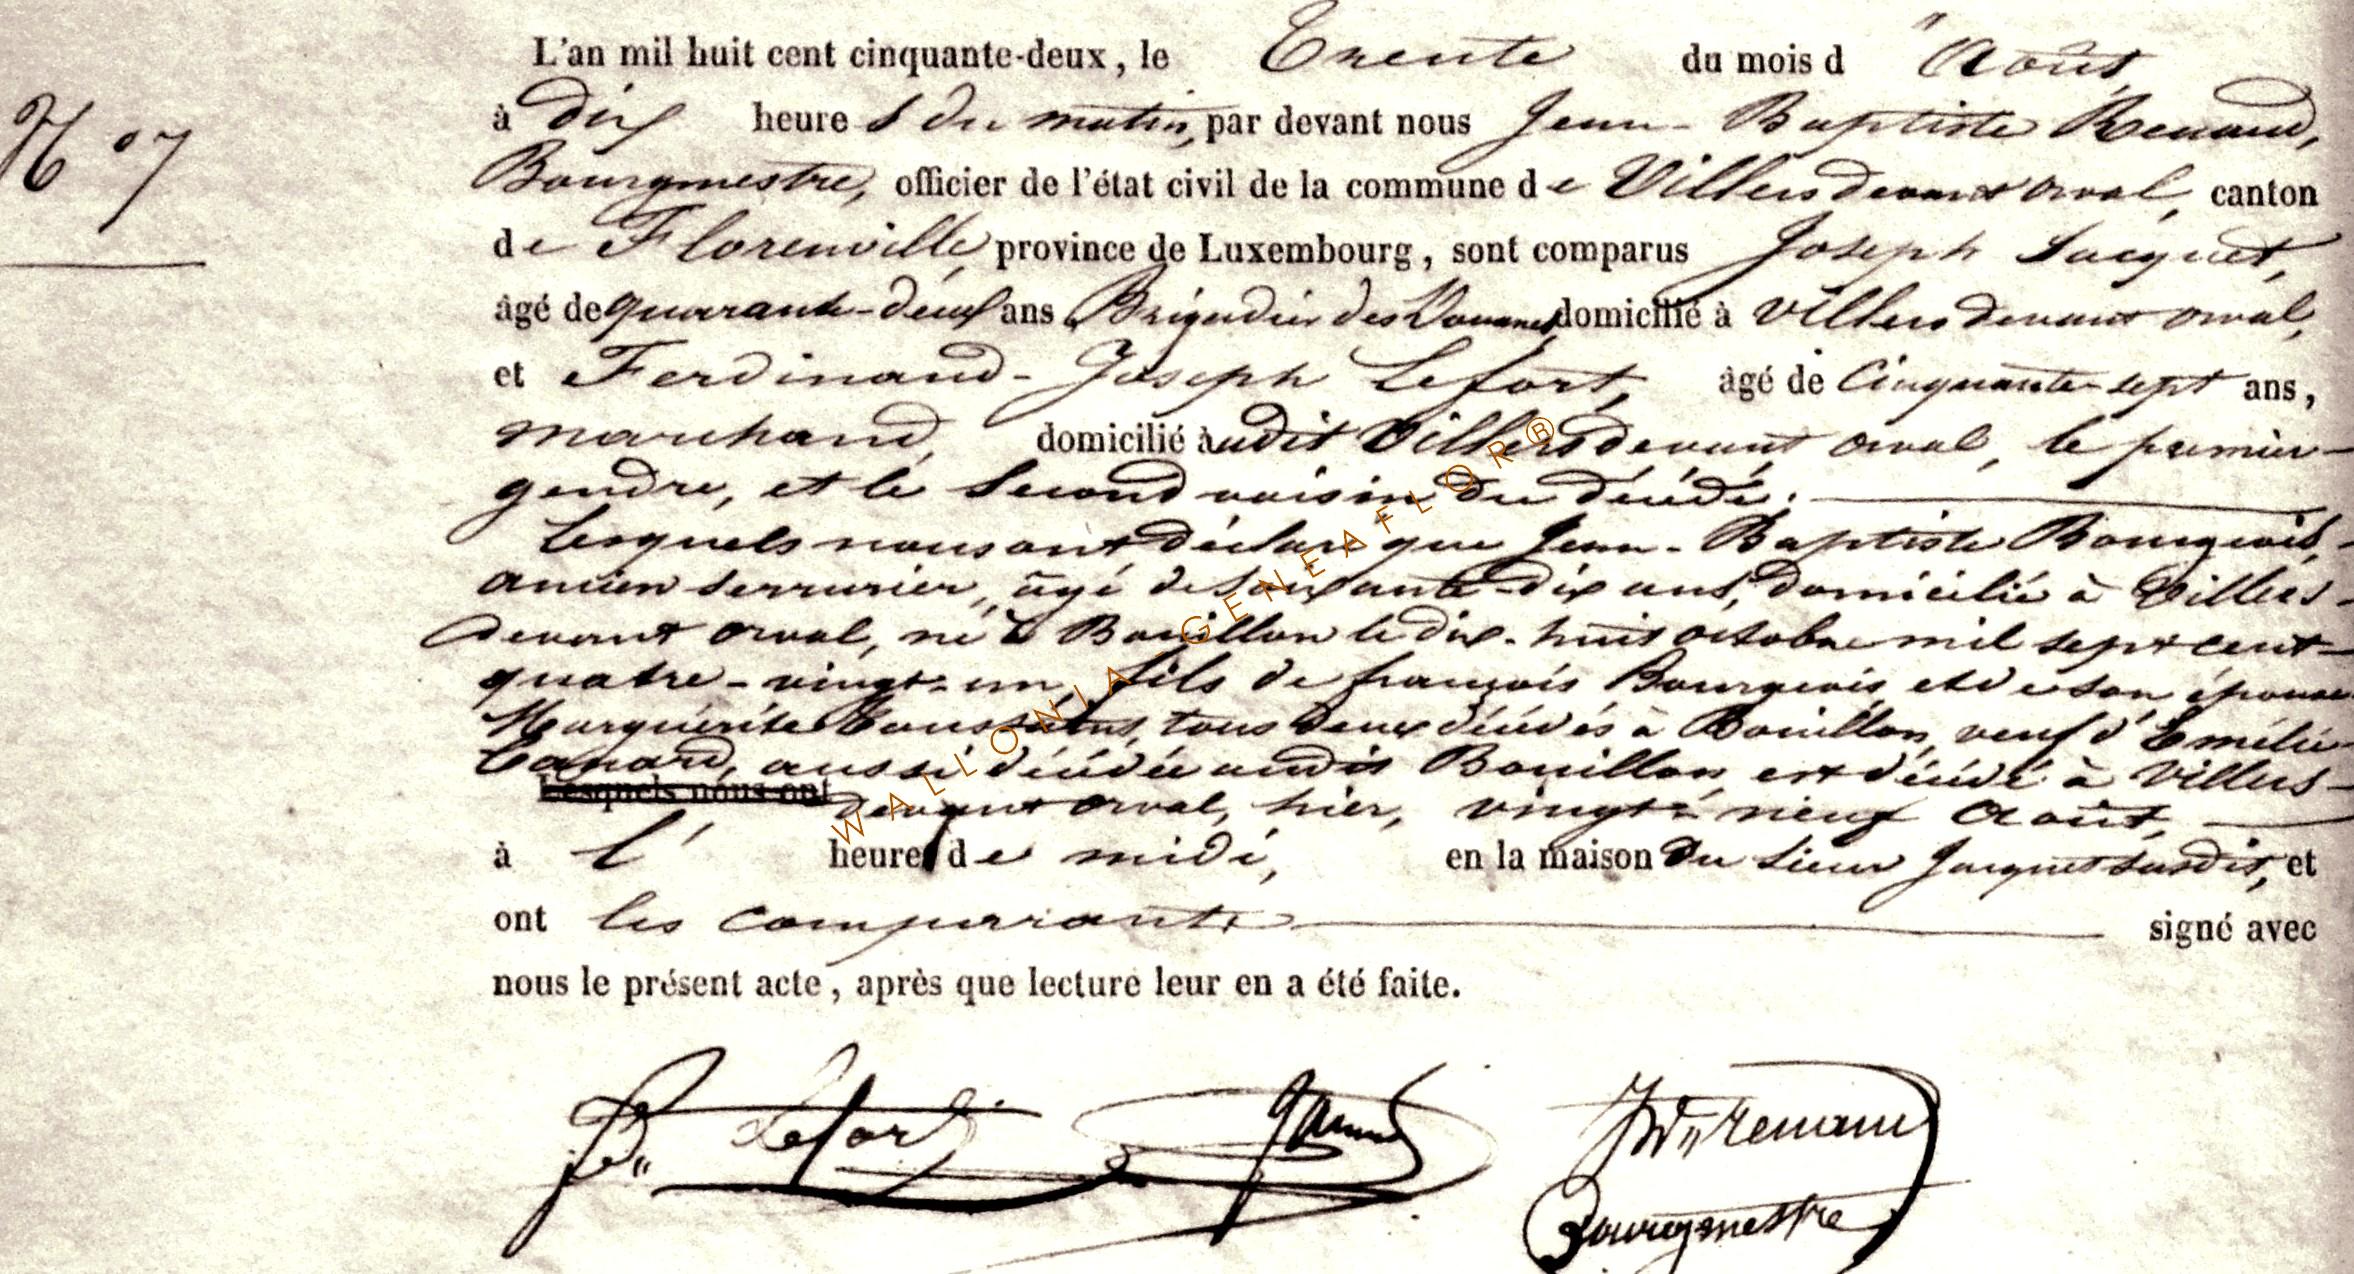 L'an mil huit cent cinquante-deux, le Trente du mois d'Août
N° 7
à dix heures du matin, par devant nous Jean-Baptiste Renaud,
Bourgmestre, officier de l'état civil de la commune de Villers devant orval, canton
de Florenville, province de Luxembourg, sont comparus Joseph Jacquet,
âgé de quarante-deux ans Brigadier des Douanes, domicilié à Villers devant orval,
et Ferdinand-Joseph Lefort, âgé de Cinquante-sept ans,
marchand, domicilié audit Villers devant orval, le premier
gendre, et le second voisin du décédé;
Lesquels nous ont déclaré que Jean-Baptiste Bourgeois,
ancien serrurier, âgé de soixante-dix ans, domicilié à Villers-
devant orval, né à Bouillon le dix-huit octobre mil sept cent-
quatre-vingt-un, fils de françois Bourgeois et de son épouse
Marguérite toussaint, tous deux décédés à Bouillon, veuf d'Emélie
Canard, aussi décédée audit Bouillon, est décédé à Villers-
Lesquels nous ont devant orval, hier, vingt-neuf Août,
à l' heure de midi, en la maison du sieur Jacquet susdit, et
ont les comparants signé avec
nous le présent acte, après que lecture leur en a été faite.
Lefort JB Renaud
Bourgmestre
WALLONIA-GENEAFLOR®